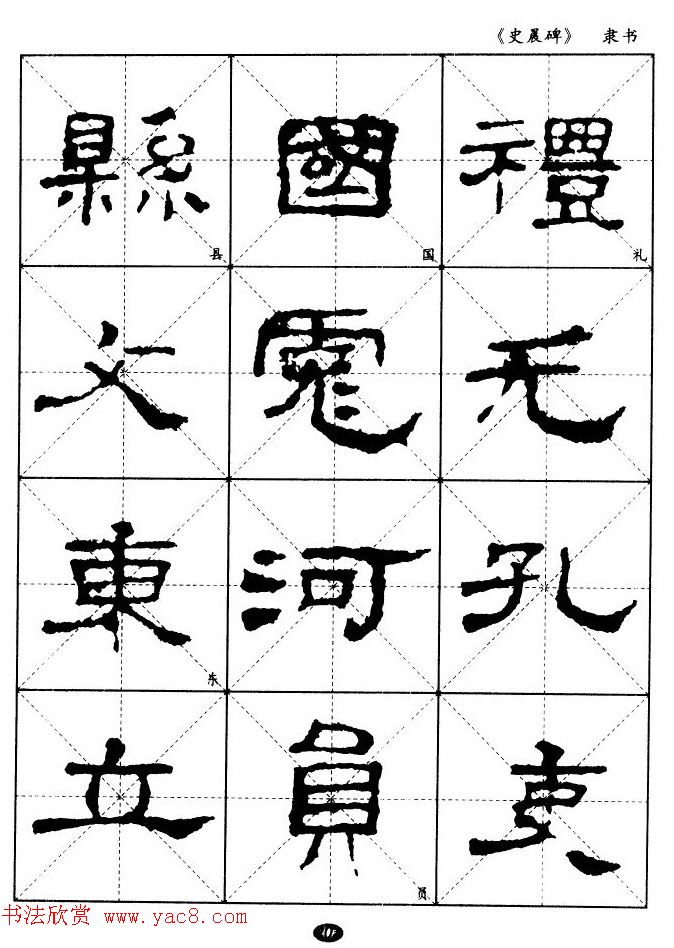 《史晨碑》 隶书
禮 礼
无
孔
吏
國 国
河
員 员
縣 县
文
東 东
立
书法欣赏 www.yac8.com